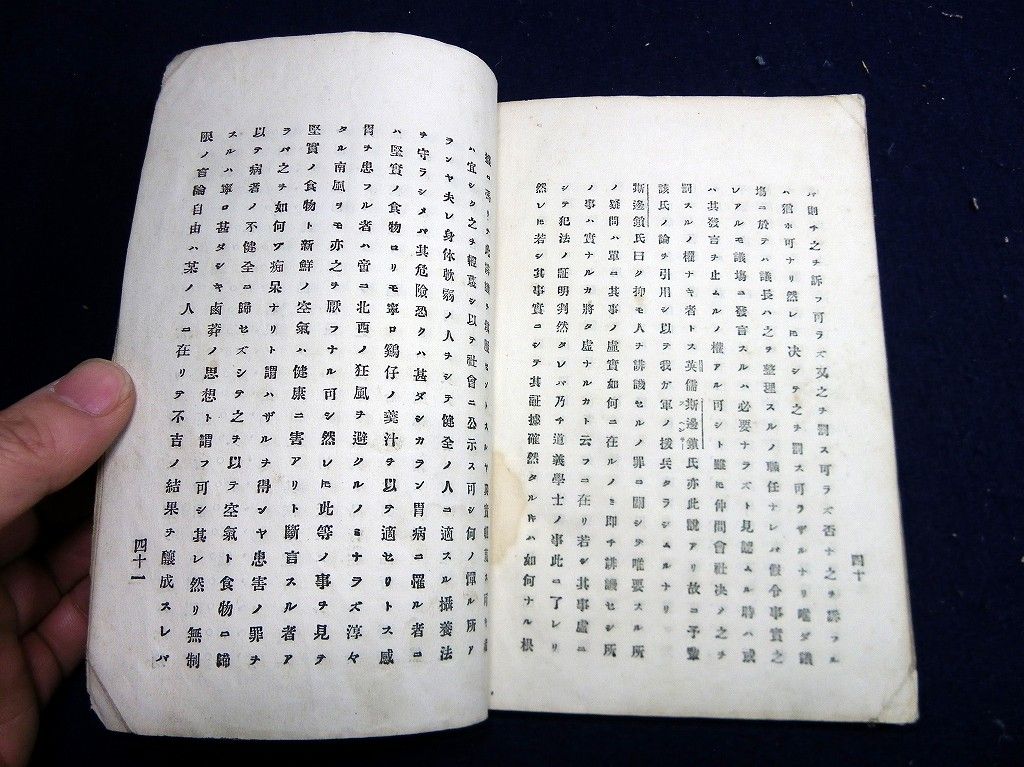 ル
チ之チ訴フ可ラズ又之チ罰ス可ラズ否ナ之チ訴フル
ハ猶ホ可ナリ然レ𪜈决シテ之チ罰ス可ラザルナリ唯ダ議
塲ニ於テハ議長ハ之チ整理スルノ職任ナレバ假令事實之
レアルモ議塲ニ發言スルハ必要ナラズト見認ムル時ハ或
ハ其發言チ止ムルノ權アル可シト雖𪜈仲間會社决ノ之チ
罰スルノ權ナキ者トス英儒斯邊鎖氏亦此說アリ故ニ予輩
スペンサー
該氏ノ論チ引用シ以テ我ガ軍ノ援兵タラシムルナリ
斯邊鎖氏曰ク抑モ人チ誹譏セルノ罪ニ關シテ唯要スル所
ノ疑問ハ單ニ其事ノ虛實如何ニ在ルノミ即チ誹譏セシ所
ノ事ハ實ナルカ將タ虛ナルカト云フニ在リ若シ其事虛ニ
シテ犯法ノ証明判然タレバ乃チ道義學士ノ事此ニ了レリ
然レ𪜈若シ其事實ニシテ其証據確然タル𪜈ハ如何ナル根
四十
ハ宜シク之チ
以テ社會ニ公示ス可シ何ノ憚ル所ア
ランヤ夫レ身体軟弱ノ人チシテ健全ノ人ニ適スル攝養法
チ守ラシメバ其危險恐クハ甚ダシカラン胃病ニ罹ル者ニ
ハ堅實ノ食物ヨリモ寧ロ鷄仔ノ羹汁チ以テ適セリトス感
冒チ患フル者ハ啻ニ北西ノ狂風チ避クルノミナラズ淳々
タル南風ヲモ亦之チ厭フナル可シ然レ𪜈此等ノ事チ見テ
堅實ノ食物ト新鮮ノ空氣ハ健康ニ害アリト斷言スル者ア
ラバ之チ如何ア痴呆ナリト謂ハザルチ得ンヤ患害ノ罪チ
以テ病者ノ不健全ニ歸セズシテ之チ以テ空氣ト食物ニ歸
スルハ寧ロ甚ダシキ鹵莽ノ思想ト謂フ可シ其レ然リ無制
限ノ言論自由ハ某ノ人ニ在リテ不吉ノ結果チ釀成スレバ
四十一